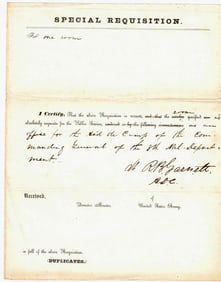 SPECIAL REQUISITION.
For one room
I Certify, That the above Requisition is correct, and that the room specified are
absolutely requisite for the Public Service, rendered so by the following circumstances an
office for the Aid de Camp of the Com-
manding General of the 7th Mil. Depart-
ment.
R. B. Garnett
A.D.C.
Received,
of
Quarter Master,
United States Army,
in full of the above Requisition.
(DUPLICATES.)